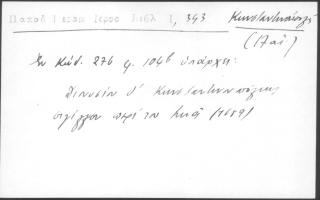 Παπαδ Κεραμ Ιεροσ Βιβλ I, 343
Κωνσταντινούπολις
(17 αἰ)
Ἐν Κώδ. 276 φ. 104β ὑπάρχει:
Διονυσίου δ' Κωνσταντινουπόλεως
σιγίλλιον περὶ του (1689)